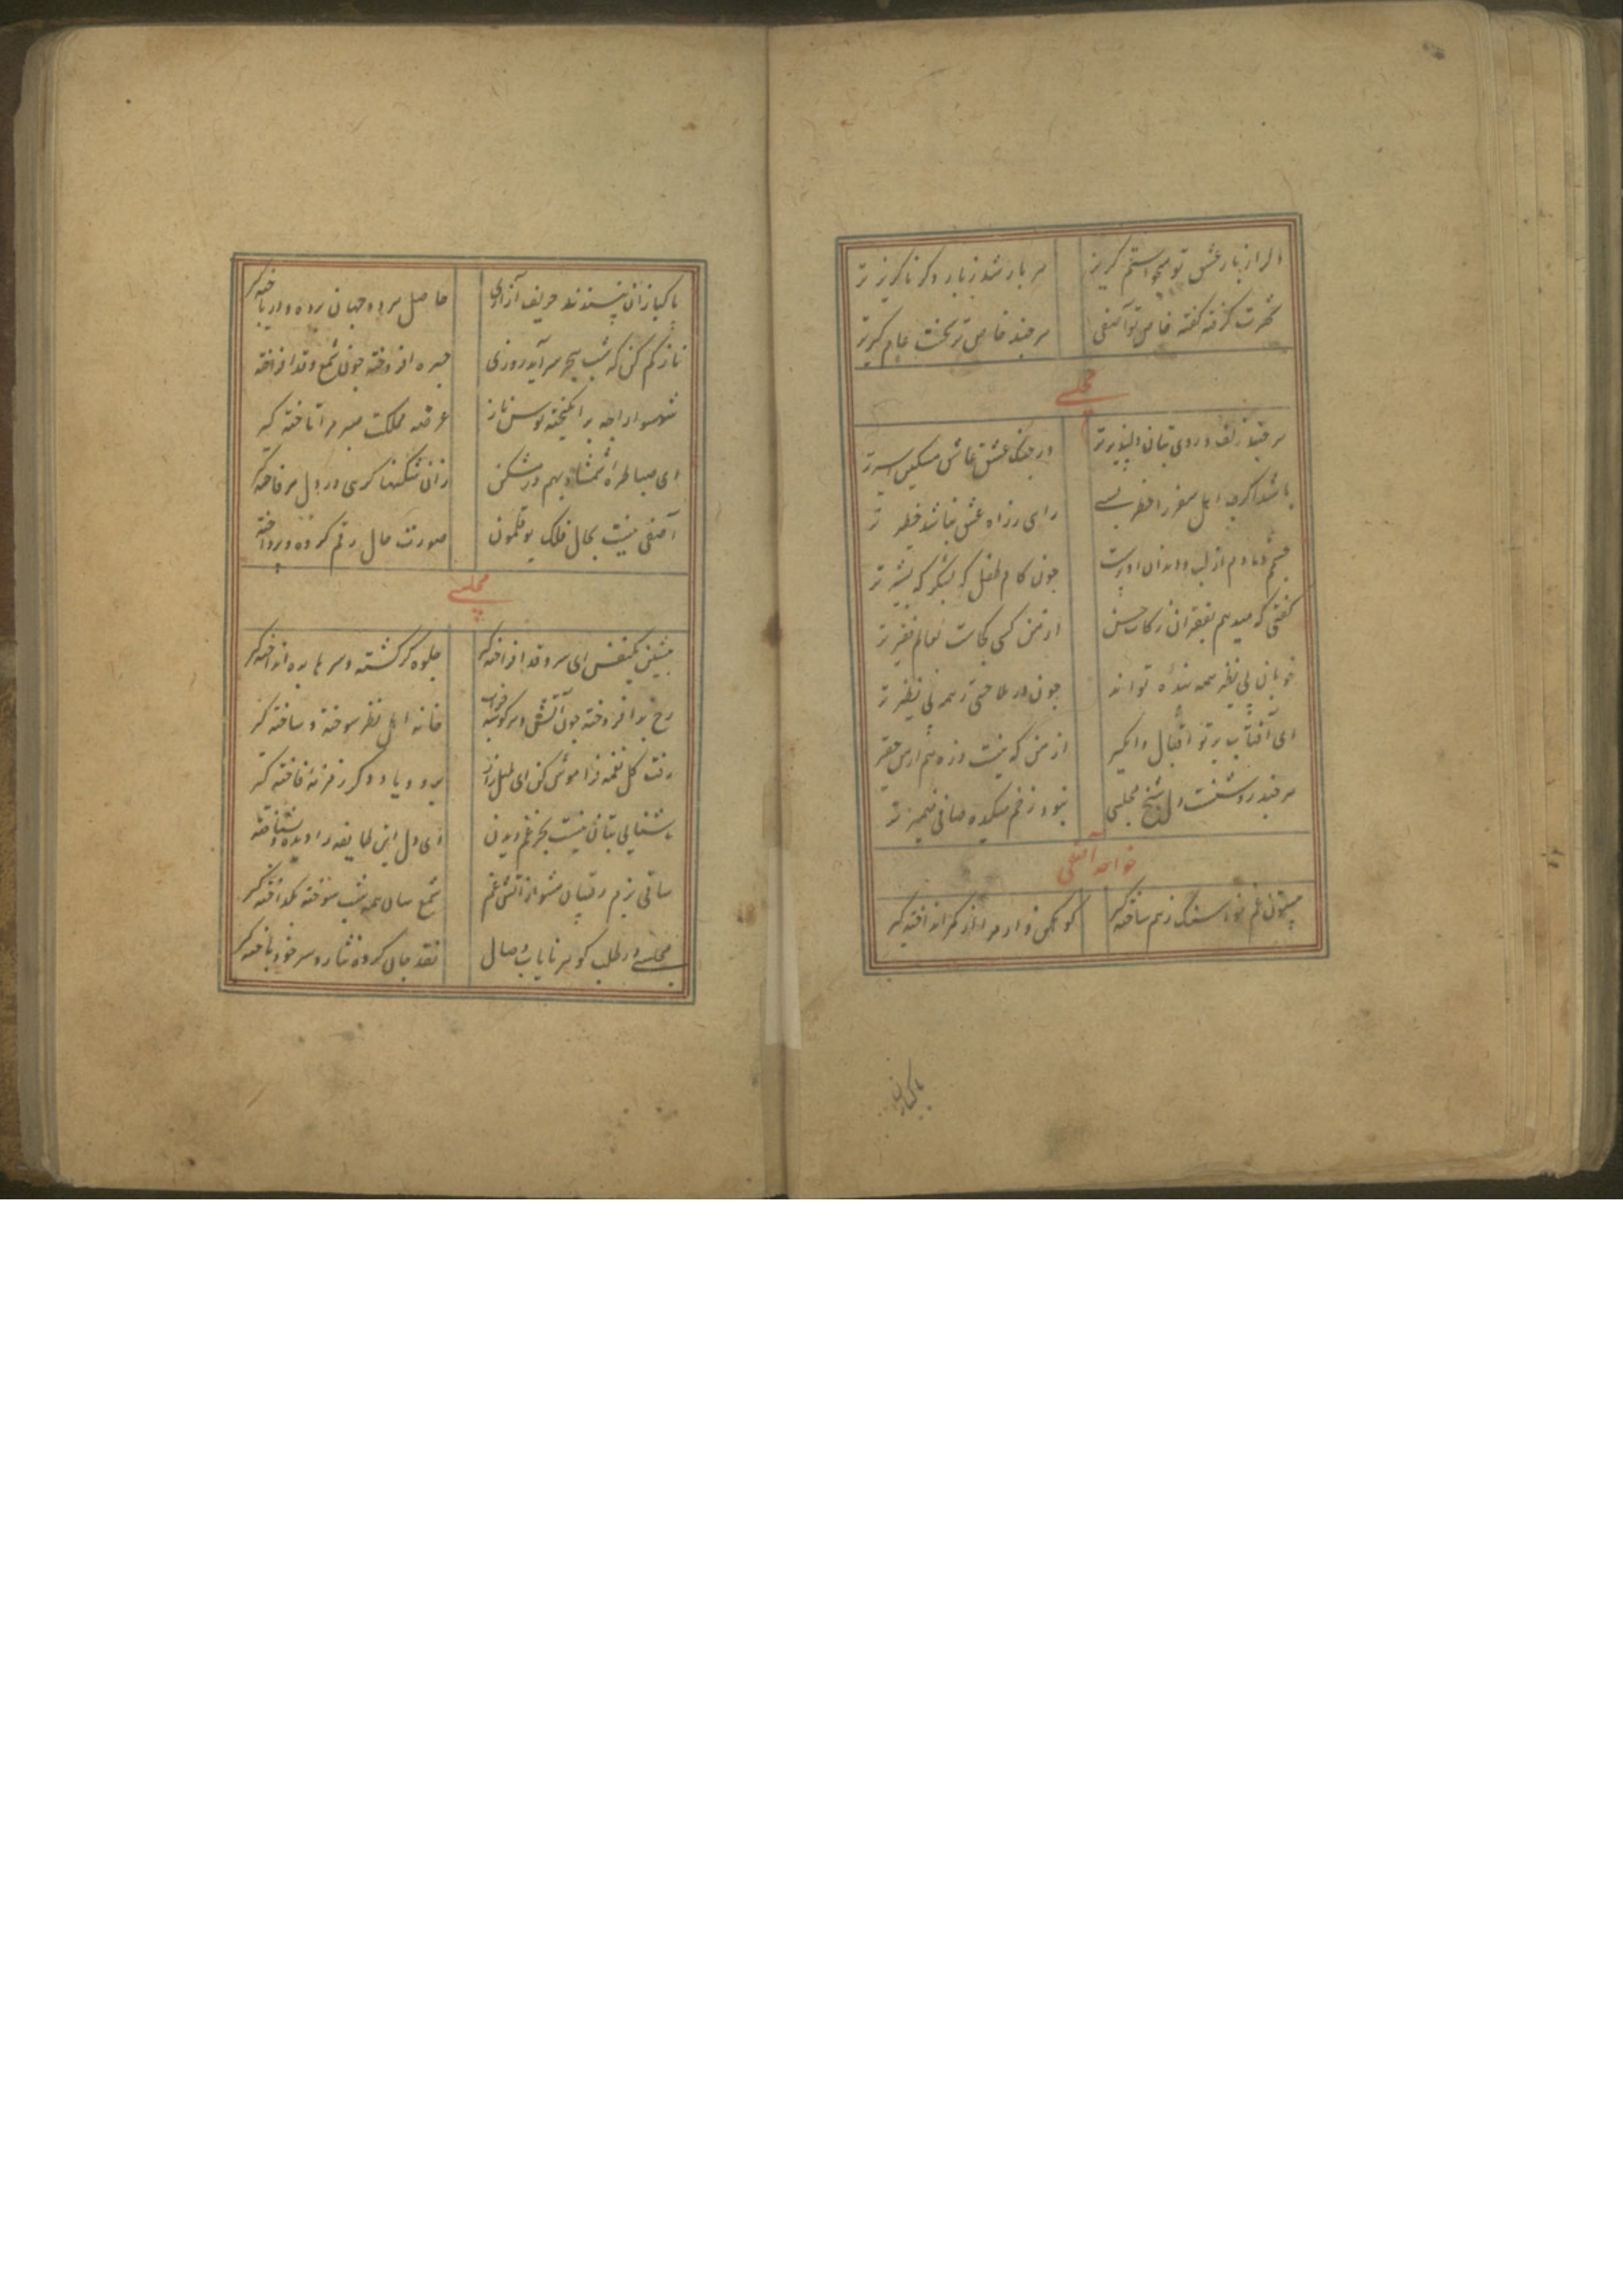 دل را ز بار عشق تو میخواستم گریز هر بار شد ز بار دگر ناگزیرتر
شهرت گرفته گفته خاص تو آصفی هر چند خاص تر سخنت عام گیرتر
مجلسی
هر چند زلف و روی بتان دلپذیرتر در چنگ عشق عاشق مسکین اسیرتر
باشد اگرچه اهل سفر را خطر بسی راهی ز راه عشق نباشد خطیرتر
چشم دمادم از لب و دندان او پرست چون کام طفل کز شکر که بشیر تر
گفتی که میدهم بفقیران زکات حسن از من کسی کجاست بعالم فقیرتر
خوبان بی نظیر همه بنده تو اند چون در ملاحتی ز همه بی نظیرتر
ای آفتاب پرتو اقبال وامگیر از من که نیست ذره هم از من حقیرتر
هر چند روشنست دل شیخ مجلسی نبود ز خم میکده صافی ضمیرتر
خواجه آصفی
بیستون غم نو از سنگ ز هم ساخته گیر کوهکن وار مرا از کمر انداخته گیر
پاکبازان
پاکبازان نپسندند حریف آزاری حاصل هر دو جهان برده و در باخته گیر
ناز کم کن که شب هجر سر آید روزی چهره افروخته چون شمع و قد افراخته
شهسوارا چه برانگیخته توسن ناز عرصه مملکت صبر مرا تاخته گیر
ای صبا طره شمشاد بهم در مشکن زان شکنها گرهی در دل هر فاخته گیر
آصفی نیست بحال فلک بوقلمون صورت حال رقم کرده و پرداخته
مجلسی
بنشین یکنفس ای سرو قد افراخته گیر جلوه گر گشته و سرها بره انداخته گیر
رخ برافروخته چون آتشی و هر گوشه خانه اهل نظر سوخته و ساخته گیر
رفت گل نغمه فراموش کن ای بلبل زار
آشنایی بتان نیست بجز غم دیدن ای دل این طایفه را دیده و نشناخته
ساقی بزم رقیبان مشو از آتش غم شمع سان همه شب سوخته بگداخته گیر
مجلسی در طلب گوهر نایاب وصال نقد جان کرده نثار و سر خود باخته گیر